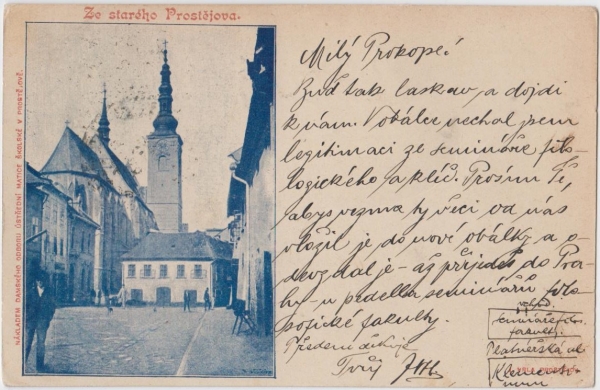 Ze starého Prostějova.
NÁKLADEM DAMSKÉHO ODBORU ÚSTŘEDNÍ MATICE ŠKOLSKÉ V PROSTĚJOVĚ.
Milý Prokope!
Buď tak laskav, a dojdi
k vám. V obálce nechal jsem
legitimaci ze semináře filo-
logického a klíč. Prosím Tě,
abys vezma ty věci od nás
vložil je do nové obálky a o-
devzdal je - až přijedeš do Pra-
hy - u pedella semináru filo-
sofické fakulty.
Předem děkuje
Tvůj
vchod.
fakulty.
Platnéřská ul.
Klementi-
num